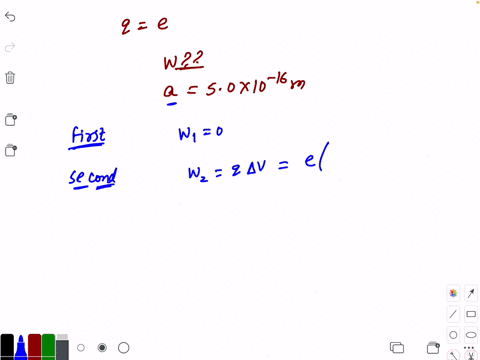 q = e
W??
a = 5.0 × 10⁻¹⁶ m
first W₁ = 0
second W₂ = q ΔV = e(